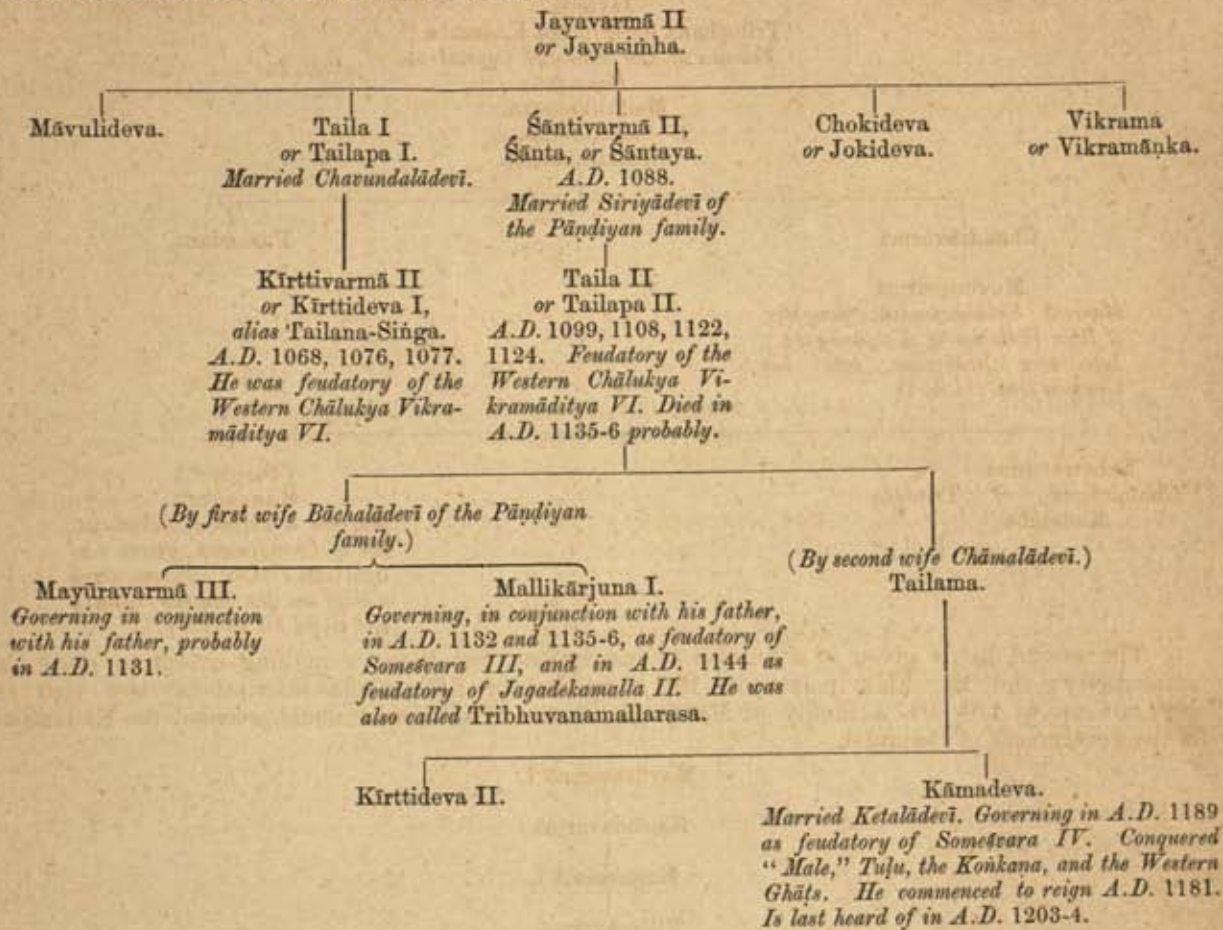 Jayavarmā II
or Jayasiṁha.
Māvulideva.
Taila I
or Tailapa I.
Married Chavundalādevī.
Śāntivarmā II,
Śānta, or Śāntaya.
A.D. 1088.
Married Siriyādevī of
the Pāṇḍiyan family.
Chokideva
or Jokideva.
Vikrama
or Vikramāṇka.
Kīrttivarmā II
or Kīrttideva I,
alias Tailana-Siṅga.
A.D. 1068, 1076, 1077.
He was feudatory of the
Western Chālukya Vikra-
māditya VI.
Taila II
or Tailapa II.
A.D. 1099, 1108, 1122,
1124. Feudatory of the
Western Chālukya Vi-
kramāditya VI. Died in
A.D. 1135-6 probably.
(By first wife Bāchalādevī of the Pāṇḍiyan
family.)
Mayūravarmā III.
Governing in conjunction
with his father, probably
in A.D. 1131.
Mallikārjuna I.
Governing, in conjunction with his father,
in A.D. 1132 and 1135-6, as feudatory of
Someśvara III, and in A.D. 1144 as
feudatory of Jagadekamalla II. He was
also called Tribhuvanamallarasa.
(By second wife Chāmalādevī.)
Tailama.
Kīrttideva II.
Kāmadeva.
Married Ketalādevī. Governing in A.D. 1189
as feudatory of Someśvara IV. Conquered
"Male," Tuḷu, the Koṅkana, and the Western
Ghāṭs. He commenced to reign A.D. 1181.
Is last heard of in A.D. 1203-4.